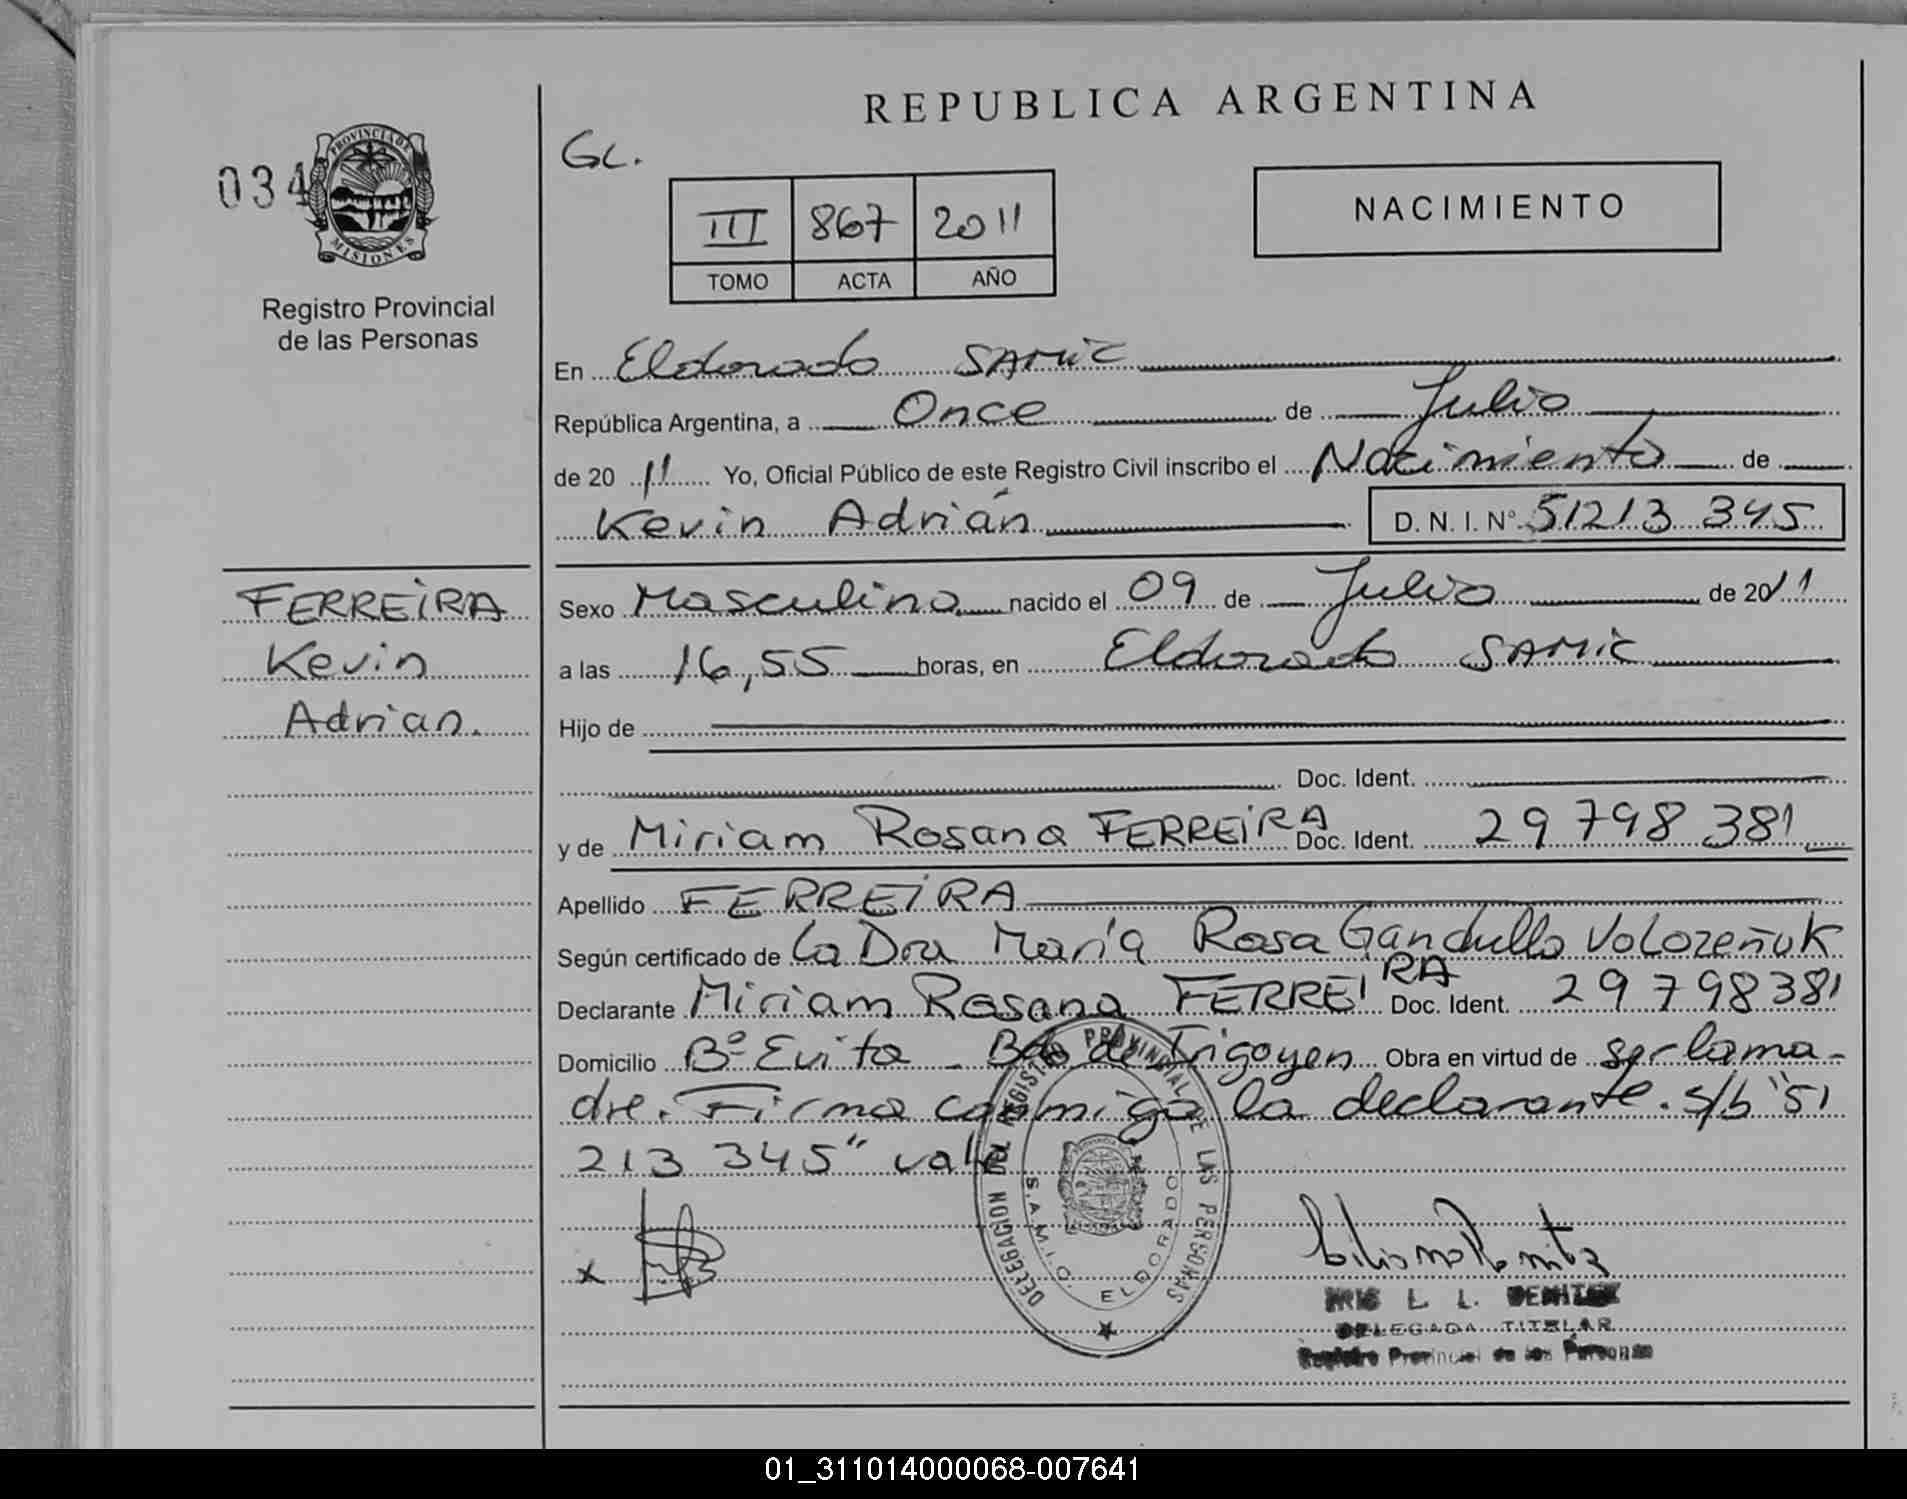 REPUBLICA ARGENTINA
034
PROVINCIA DE
MISIONES
Registro Provincial
de las Personas
GL.
III 867 2011
TOMO ACTA AÑO
NACIMIENTO
En Eldorado SAMIC
República Argentina, a Once de Julio
de 2011 Yo, Oficial Público de este Registro Civil inscribo el Nacimiento de
Kevin Adrián D. N. I. N° 51213 345
FERREIRA
Kevin
Adrian.
Sexo Masculino nacido el 09 de Julio de 2011
a las 16,55 horas, en Eldorado SAMIC
Hijo de
Doc. Ident.
y de Miriam Rosana FERREIRA Doc. Ident. 29 798 381
Apellido FERREIRA
Según certificado de la Dra María Rosa Gandullo Volozeñuk
Declarante Miriam Rosana FERREIRA Doc. Ident. 29 798381
Domicilio Bº Evita - Bdo de Irigoyen Obra en virtud de ser la ma-
dre. Firma conmigo la declarante. s/b "51
213 345" vale
DELEGACION DEL REGISTRO PROVINCIAL DE LAS PERSONAS
S.A.M.I.C. ELDORADO
x
IRIS L. L. BENITEZ
DELEGADA TITULAR
Registro Provincial de las Personas
01_311014000068-007641